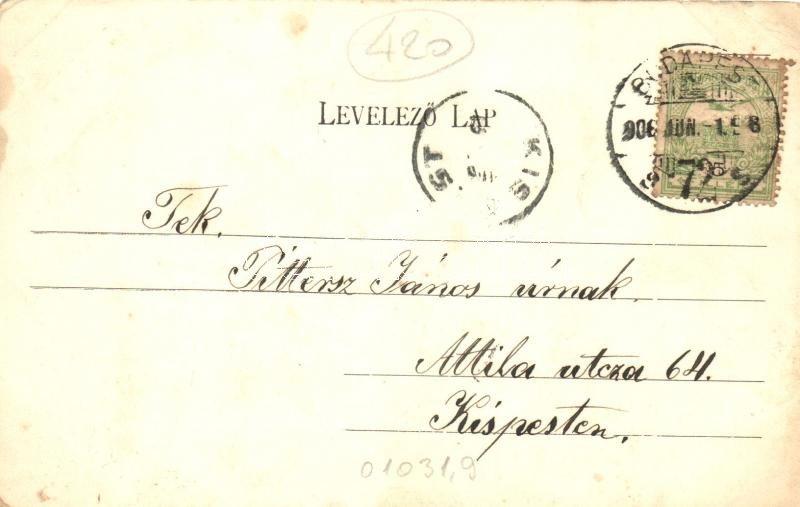 420
LEVELEZŐ LAP
KIS ST
BUDAPEST
906 JUN.-1.
72
Tek.
Pittersz János úrnak.
Attila utcza 64.
Kispesten.
01031,9